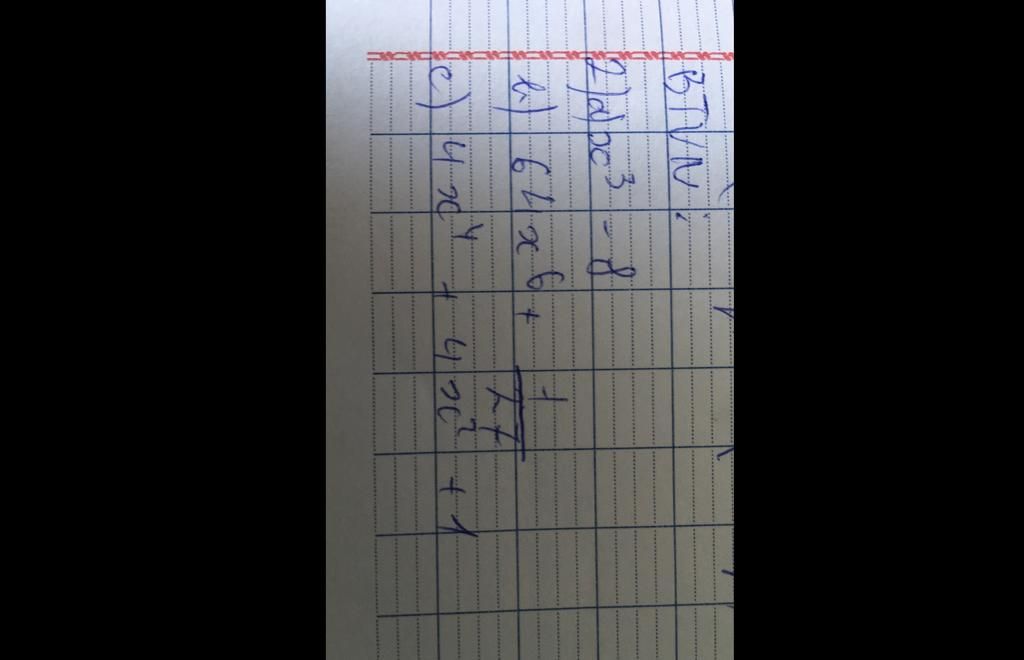 BTVN:
2) a) x³ - 8
b) 64x⁶ + 1/27
c) 4x⁴ + 4x² + 1